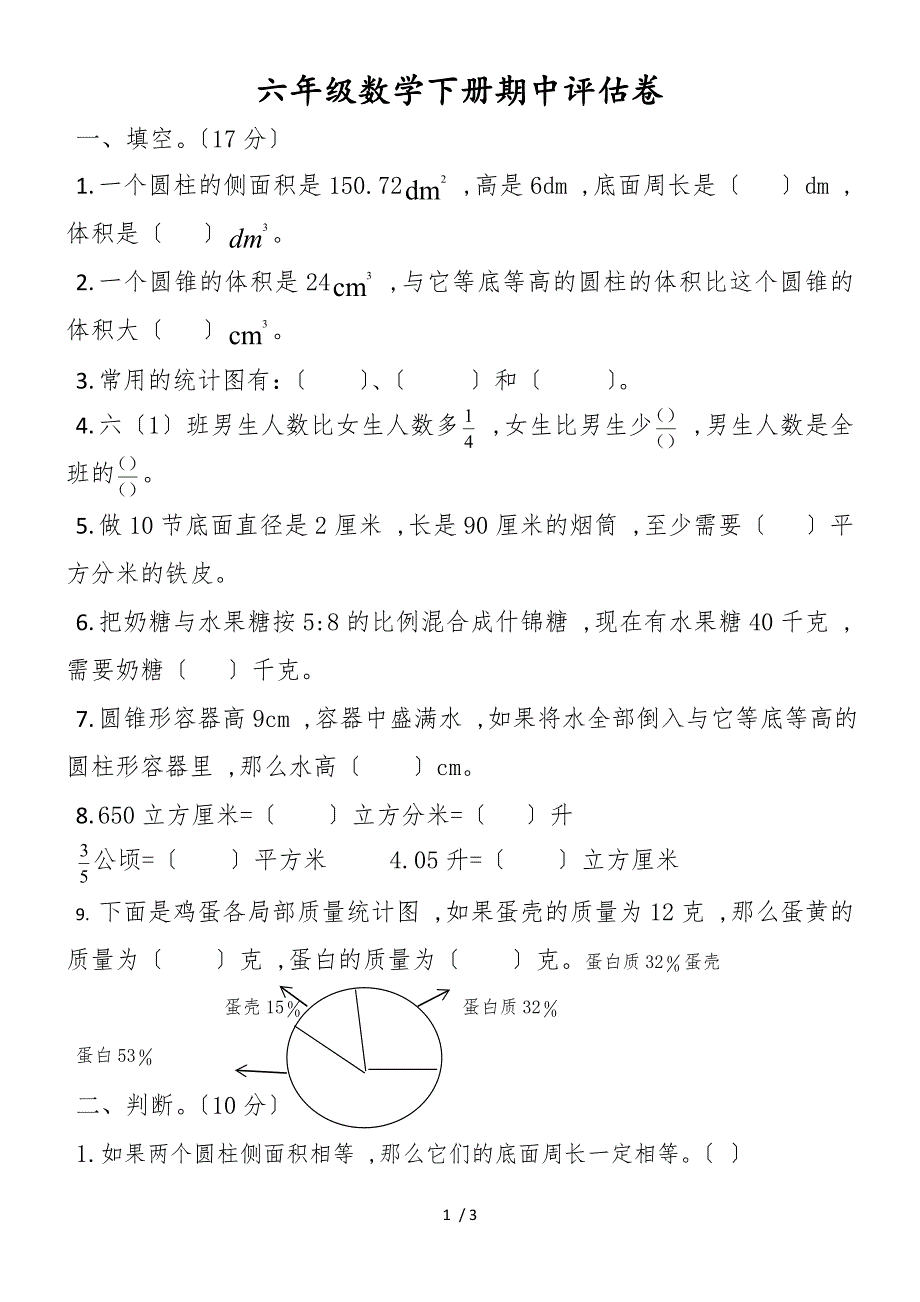 六年级数学下册期中评估卷
一、填空。〔17分〕
1.一个圆柱的侧面积是150.72dm² ,高是6dm ,底面周长是〔　〕dm ,
体积是〔　〕dm³。
2.一个圆锥的体积是24cm³ ,与它等底等高的圆柱的体积比这个圆锥的
体积大〔　〕cm³。
3.常用的统计图有:〔　〕、〔　〕和〔　〕。
4.六〔1〕班男生人数比女生人数多1/4 ,女生比男生少()/() ,男生人数是全
班的()/()。
5.做10节底面直径是2厘米 ,长是90厘米的烟筒 ,至少需要〔　〕平
方分米的铁皮。
6.把奶糖与水果糖按5:8的比例混合成什锦糖 ,现在有水果糖40千克 ,
需要奶糖〔　〕千克。
7.圆锥形容器高9cm ,容器中盛满水 ,如果将水全部倒入与它等底等高的
圆柱形容器里 ,那么水高〔　〕cm。
8.650立方厘米=〔　〕立方分米=〔　〕升
3/5公顷=〔　〕平方米　4.05升=〔　〕立方厘米
9. 下面是鸡蛋各局部质量统计图 ,如果蛋壳的质量为12克 ,那么蛋黄的
质量为〔　〕克 ,蛋白的质量为〔　〕克。蛋白质32%蛋壳
蛋壳15%　蛋白质32%
蛋白53%
二、判断。〔10分〕
1.如果两个圆柱侧面积相等 ,那么它们的底面周长一定相等。〔 〕
1 / 3